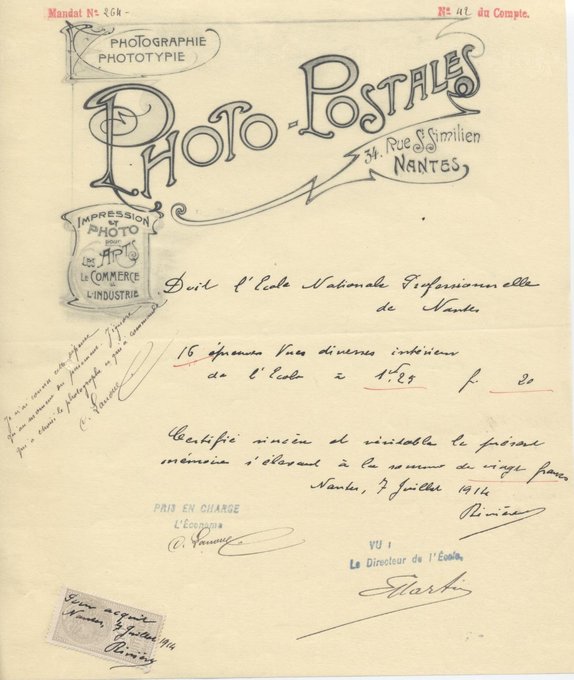 Mandat No 264 -
No 42 du Compte.
PHOTOGRAPHIE
PHOTOTYPIE
PHOTO-POSTALES
34. Rue St Similien
NANTES
IMPRESSION
ET
PHOTO
pour
LES ARTS
LE COMMERCE
&
L'INDUSTRIE
Doit l'Ecole Nationale Professionnelle
de Nantes
16 épreuves Vues diverses intérieur
de l'Ecole à 1f,25 f. 20
Je n'ai connu cette dépense
qu'au moment du paiement. J'ignore
qui a choisi le photographe et qui a commandé
Certifié sincère et véritable le présent
mémoire s'élevant à la somme de vingt francs
Nantes, 7 Juillet 1914
Rivière
PRIS EN CHARGE
L'Économe
VU :
Le Directeur de l'École,
EMartin
Pour acquit
Nantes, 7 Juillet 1914
Rivière